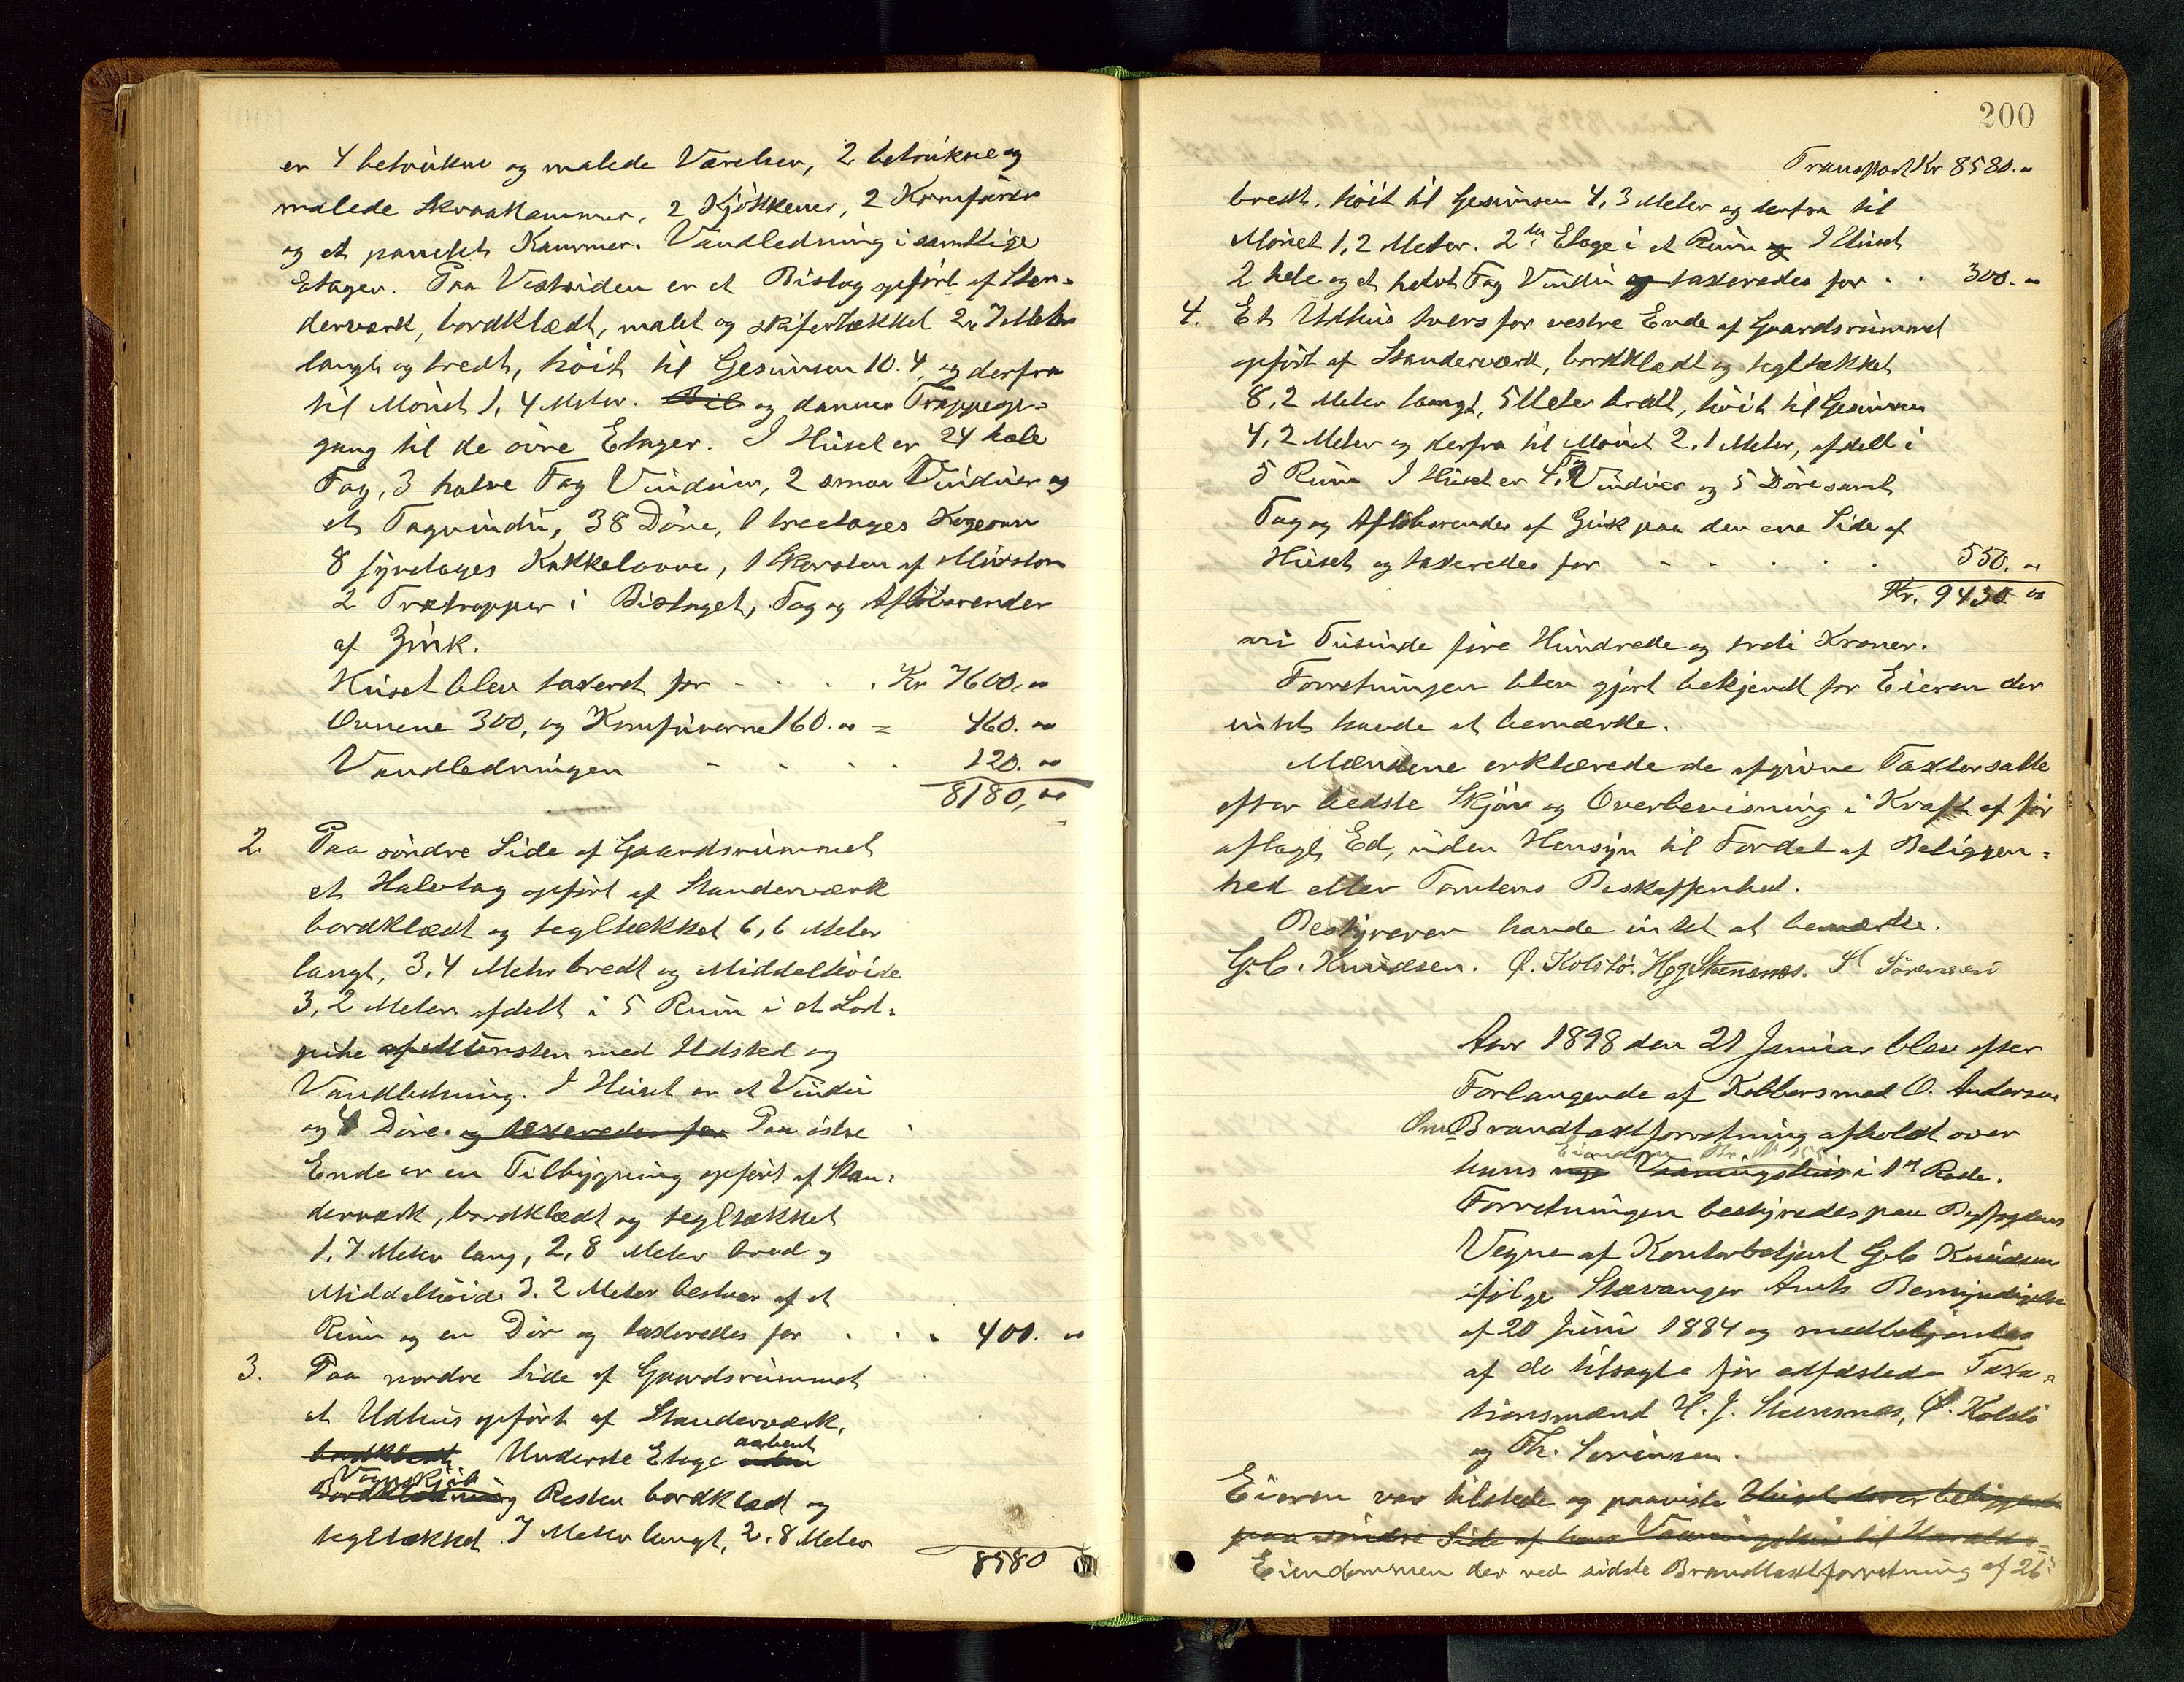 er 4 betrukne og malede Værelser, 2 betrukne og
malede Skraakammer, 2 Kjøkkener, 2 Komfurer
og et panelt Kammer. Vandledning i samtlige
Etager. Paa Vestsiden er et Bislag opført af Sten-
derværk, bordklædt, malet og skifertækket 2,7 Meter
langt og bredt, høit til Gesimsen 10.4, og derfra
til Mønet 1,4 Meter. og danner Trappeop-
gang til de øvre Etager. I Huset er 24 hele
Fag, 3 halve Fag Vinduer, 2 smaa Vinduer og
et Tagvindu, 38 Døre, 1 treetages Kogeovn
8 fyretages Kakkelovne, 1 Skorsten af Mursten
2 Trætrapper i Bislaget, Tag og Afløbsrender
af Zink.
Huset blev taxeret for - - . . Kr 7600,00
Ovnene 300, og Komfurerne 160.00 = 460.00
Vandledningen - - . . 120.00
8180,00
2. Paa søndre Side af Gaardsrummet
et Halvtag opført af Standerværk
bordklædt og tegltækket 6,6 Meter
langt, 3,4 Meter bredt og Middelhøide
3,2 Meter afdelt i 5 Rum i et Sod-
pibe af Mursten med Ildsted og
Vandledning. I Huset er et Vindu
og 4 Døre. og taxeredes for Paa østre
Ende er en Tilbygning opført af Stan-
derværk, bordklædt og tegltækket
1,7 Meter lang, 2,8 Meter bred og
Middelhøide 3.2 Meter bestaar af et
Rum og en Dør og taxeredes for . . . 400.00
3. Paa nordre Side af Gaardsrummet
et Udhus opført af Standerværk,
aabent
bordklædt Underste Etage uden
Vognskjul
Bordklædning Resten bordklæd og
tegltækket. 7 Meter langt, 2.8 Meter
8580
200
Transport Kr 8580.00
bredt, høit til Gesimsen 4,3 Meter og derfra til
Mønet 1,2 Meter. 2den Etage i et Rum og I Huset
2 hele og et halvt Fag Vindu og taxeredes for . . 300.00
4. Et Udhus tvers for vestre Ende af Gaardsrummet
opført af Standerværk, bordklædt og tegltækket
8,2 Meter langt, 5 Meter bredt, høit til Gesimsen
4,2 Meter og derfra til Mønet 2,1 Meter, afdelt i
Fag
5 Rum I Huset er 4 Vinduer og 5 Døre samt
Tag og Afløbsrender af Zink paa den ene Side af
Huset og taxeredes for - - . . . 550.00
Kr. 9430 00
ni Tusinde fire Hundrede og tredi Kroner.
Forretningen blev gjort bekjendt for Eieren der
intet havde at bemærke.
Mændene erklærede de afgivne Taxter satte
efter bedste Skjøn og Overbevisning i Kraft af før
aflagt Ed, uden Hensyn til Fordel af Beliggen-
hed eller Tomtens Beskaffenhed.
Bestyreren havde intet at bemærke.
G.C. Knudsen. O. Kolstø. H J Stensnes. Sørensen
Aar 1898 den 21 Januar blev efter
Forlangende af Kobbersmed O. Andersen
Om Brandtaxtforretning afholdt over
Eiendom Br. No
hans nye Vaaningshus i 1st Rode.
Forretningen bestyredes paa Byfogdens
Vegne af Kontorbetjent G.C. Knudsen
ifølge Stavanger Amts Bemyndigelse
af 20 Juni 1884 og medbetjentes
af de tilsagte før edfæstede Taxa-
tionsmænd H. J. Stensnes, O. Kolstø
og Th. Sørensen.
Eieren var tilstede og paaviste Huset der er beliggende
paa søndre Side af hans Vaaningshus til Haralds-
Eiendommen der ved sidste Brandtaxtforretning af 26